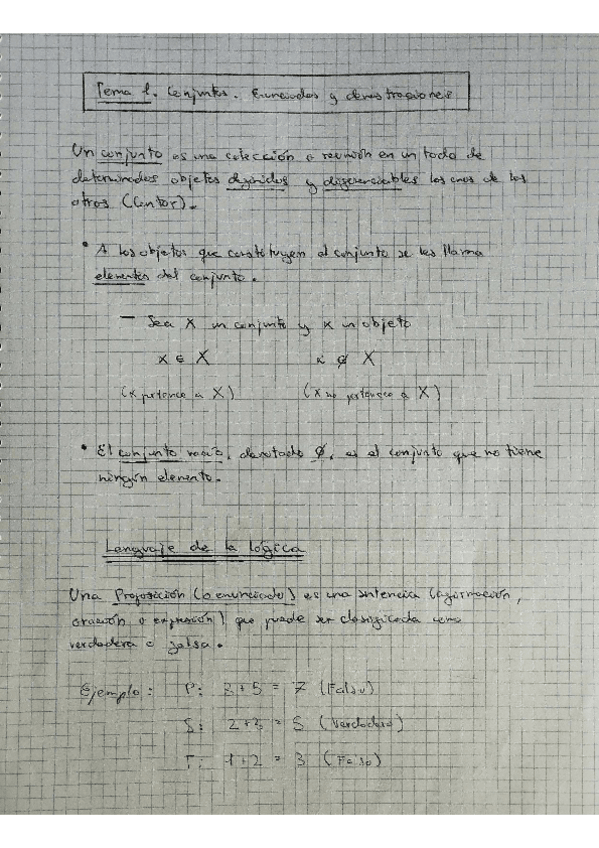 Tema 1. Conjuntos. Enunciados y demostraciones
Un conjunto es una colección o reunión en un todo de
determinados objetos definidos y diferenciables los unos de los
otros (Cantor).
• A los objetos que constituyen el conjunto se les llama
elementos del conjunto.
— Sea X un conjunto y x un objeto
x ∈ X x ∉ X
(x pertenece a X) (x no pertenece a X)
• El conjunto vacío, denotado ∅, es el conjunto que no tiene
ningún elemento.
Lenguaje de la lógica
Una Proposición (o enunciado) es una sentencia (afirmación,
oración o expresión) que puede ser clasificada como
verdadera o falsa.
Ejemplo: P: 3+5 = 7 (Falso)
S: 2+3 = 5 (Verdadero)
T: 1+2 = 3 (Falso)